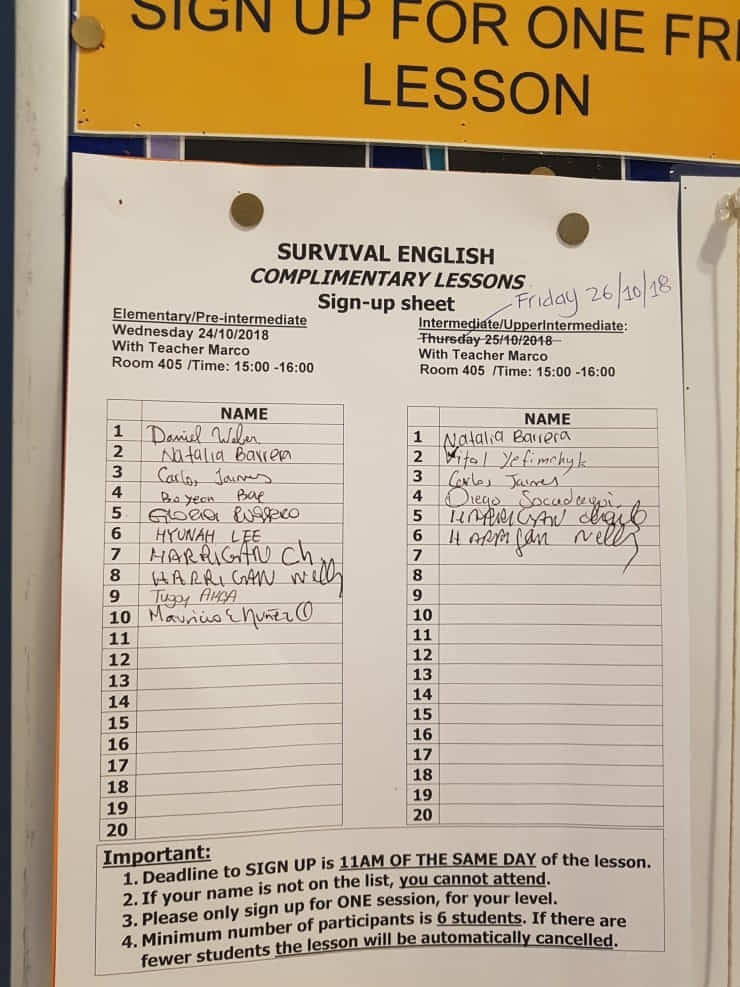 SIGN UP FOR ONE FRE
LESSON
SURVIVAL ENGLISH
COMPLIMENTARY LESSONS
Sign-up sheet
Friday 26/10/18
Elementary/Pre-intermediate
Wednesday 24/10/2018
With Teacher Marco
Room 405 /Time: 15:00 -16:00
NAME
1 Daniel Weber
2 Natalia Barrera
3 Carlos Jaimes
4 Boyeon Bae
5 RUGGERO
6 HYUNAH LEE
7 HARRIGAN Ch.
8 HARRIGAN Nelly
9 Tugay
10 Mauricio Nuñez
11
12
13
14
15
16
17
18
19
20
Intermediate/UpperIntermediate:
Thursday 25/10/2018
With Teacher Marco
Room 405 /Time: 15:00 -16:00
NAME
1 Natalia Barrera
2 Vital Yefimchyk
3 Carlos Jaimes
4 Diego
5 HARRIGAN
6 HARRIgan Nelly
7
8
9
10
11
12
13
14
15
16
17
18
19
20
Important:
1. Deadline to SIGN UP is 11AM OF THE SAME DAY of the lesson.
2. If your name is not on the list, you cannot attend.
3. Please only sign up for ONE session, for your level.
4. Minimum number of participants is 6 students. If there are
fewer students the lesson will be automatically cancelled.